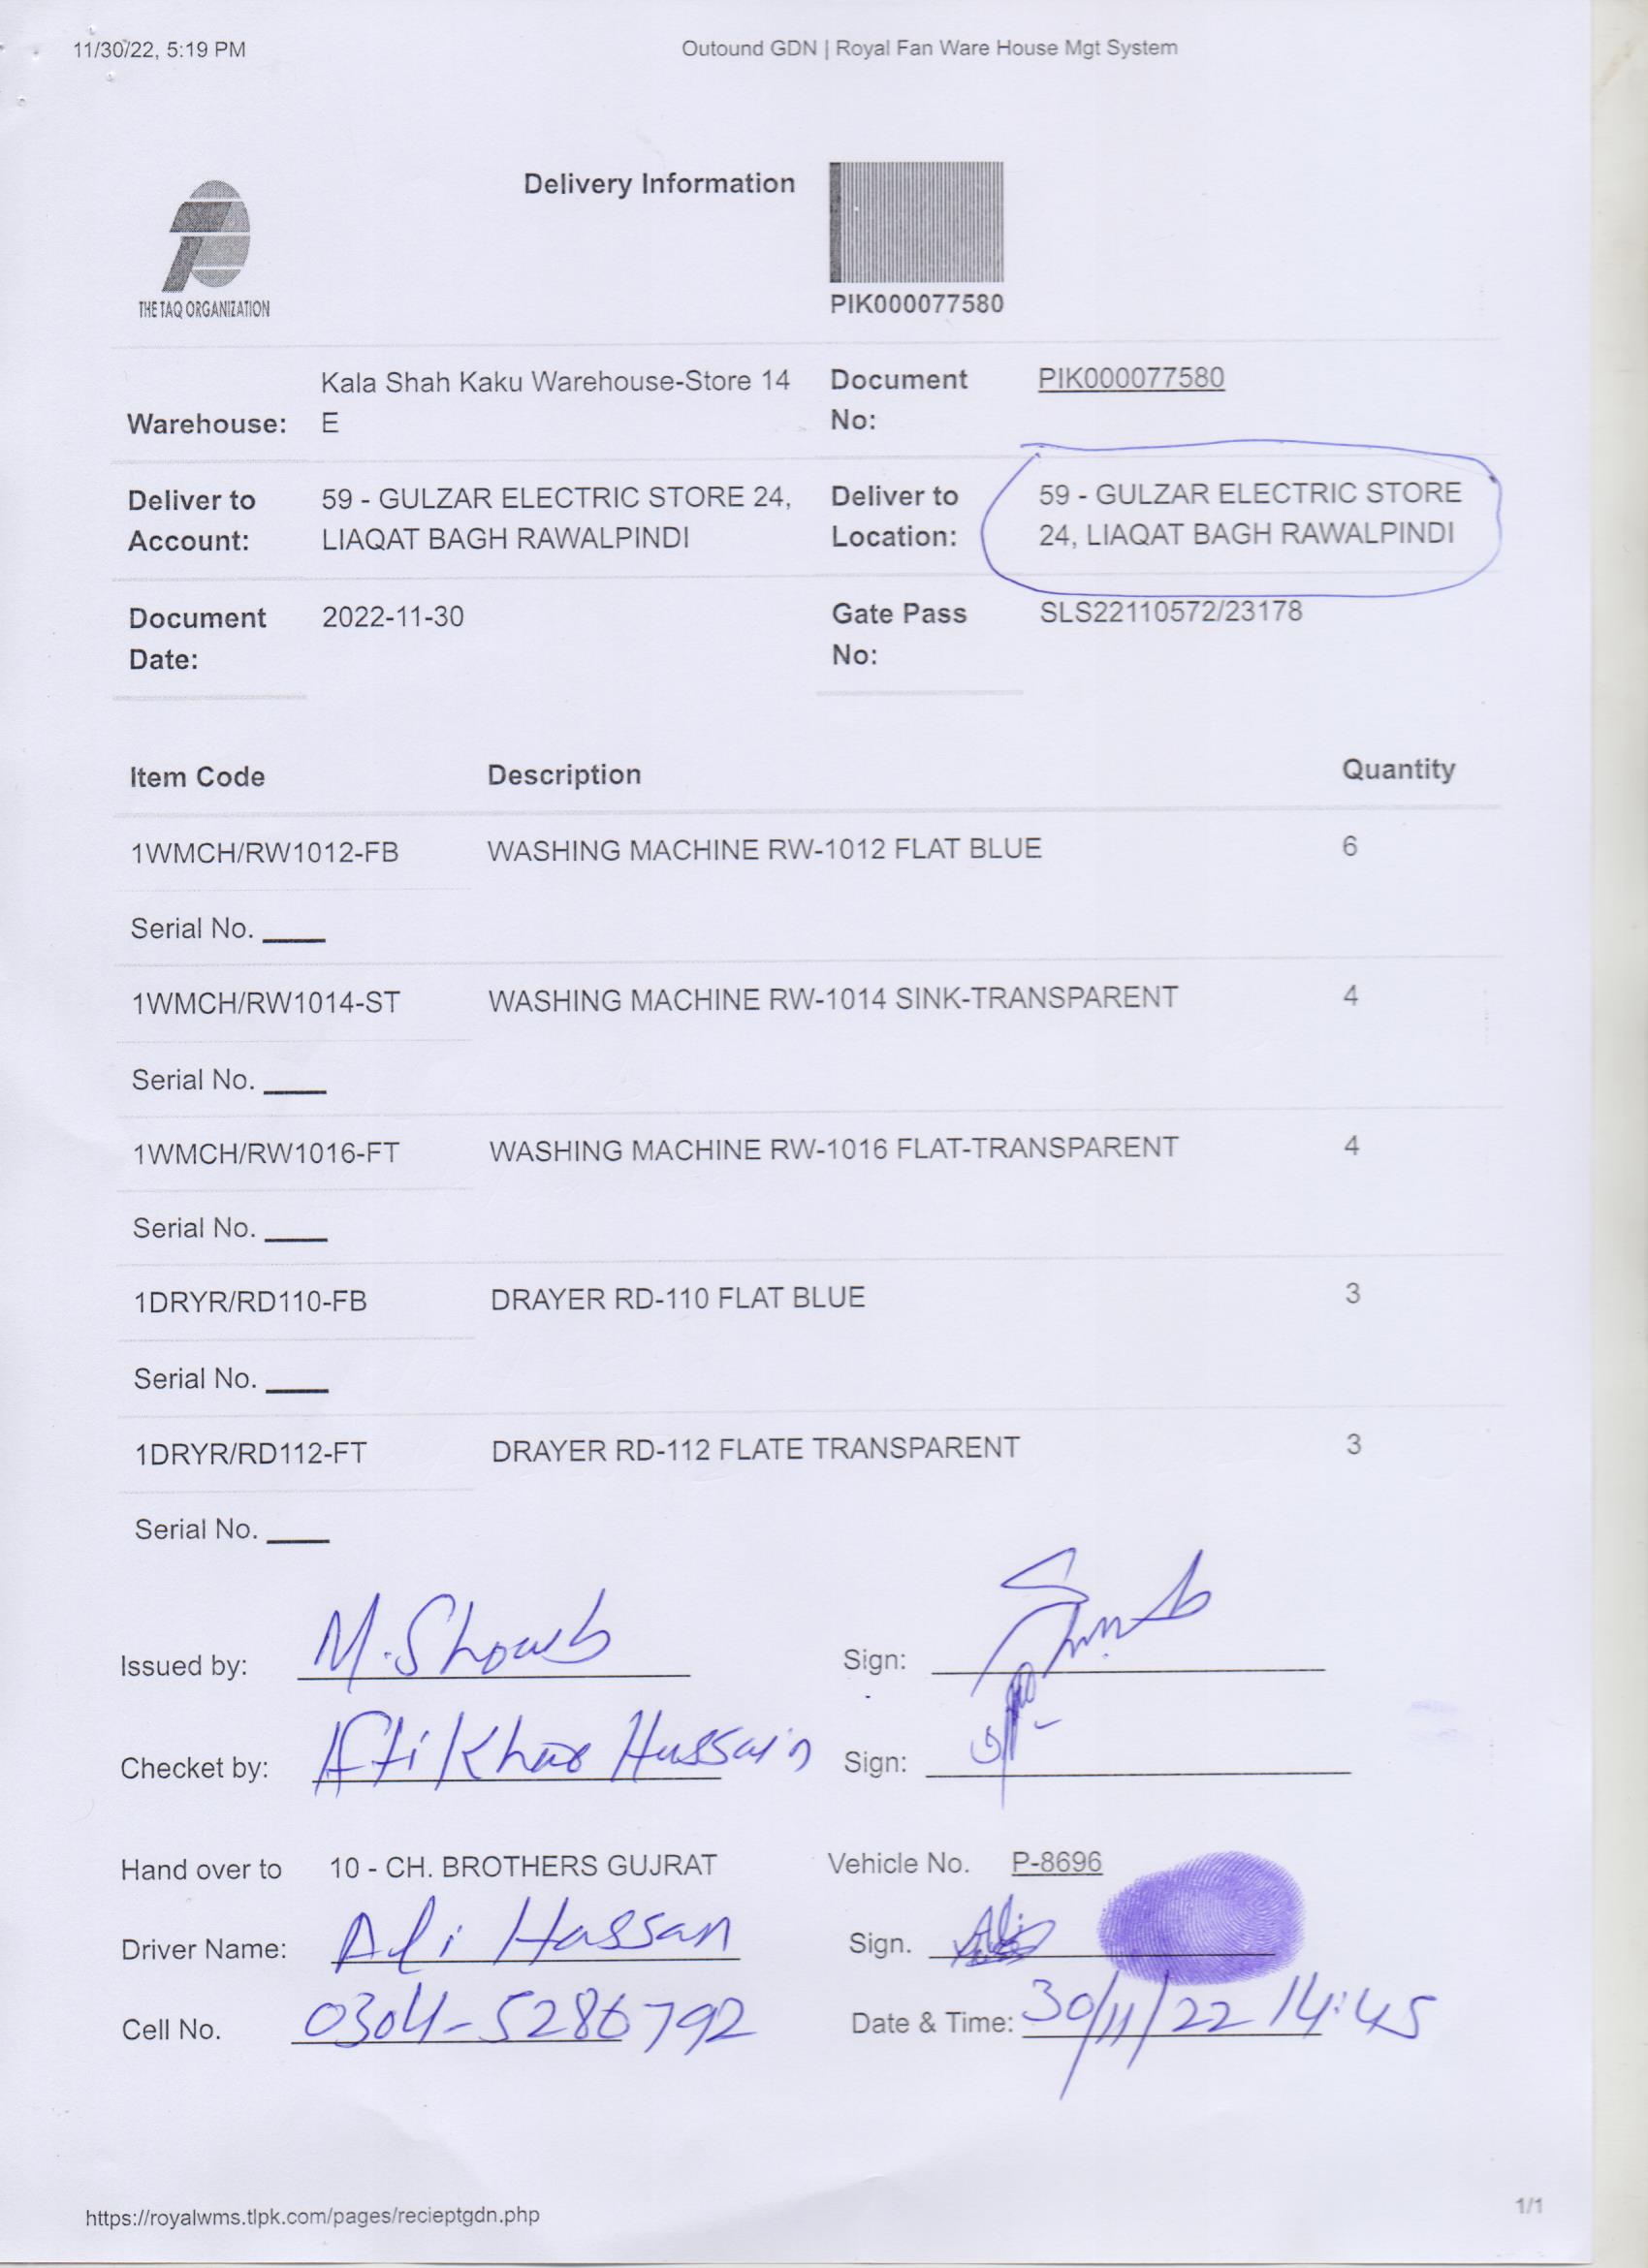 11/30/22, 5:19 PM
Outound GDN | Royal Fan Ware House Mgt System
THE TAQ ORGANIZATION
Delivery Information
PIK000077580
Warehouse: Kala Shah Kaku Warehouse-Store 14 E
Document No: PIK000077580
Deliver to Account: 59 - GULZAR ELECTRIC STORE 24, LIAQAT BAGH RAWALPINDI
Deliver to Location: 59 - GULZAR ELECTRIC STORE 24, LIAQAT BAGH RAWALPINDI
Document Date: 2022-11-30
Gate Pass No: SLS22110572/23178
Item Code Description Quantity
1WMCH/RW1012-FB WASHING MACHINE RW-1012 FLAT BLUE 6
Serial No.
1WMCH/RW1014-ST WASHING MACHINE RW-1014 SINK-TRANSPARENT 4
Serial No.
1WMCH/RW1016-FT WASHING MACHINE RW-1016 FLAT-TRANSPARENT 4
Serial No.
1DRYR/RD110-FB DRAYER RD-110 FLAT BLUE 3
Serial No.
1DRYR/RD112-FT DRAYER RD-112 FLATE TRANSPARENT 3
Serial No.
Issued by: M. Shoaib Sign:
Checket by: Iftikhar Hussain Sign:
Hand over to 10 - CH. BROTHERS GUJRAT Vehicle No. P-8696
Driver Name: Ali Hassan Sign. Ali
Cell No. 0304-5286792 Date & Time: 30/11/22 14:45
https://royalwms.tlpk.com/pages/recieptgdn.php
1/1